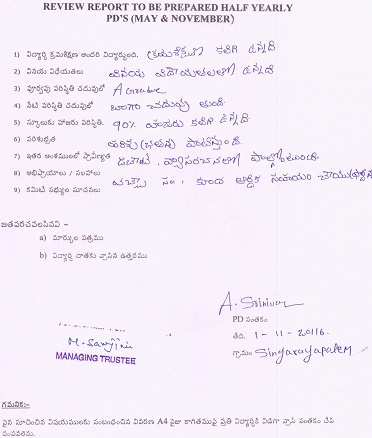 REVIEW REPORT TO BE PREPARED HALF YEARLY
PD'S (MAY & NOVEMBER)
1) విద్యార్థి క్రమశిక్షణ అందరి విద్యార్థులంది. క్రమశిక్షణ కలిగి ఉన్నది.
2) వినయ విధేయతలు వినయ విధేయతలతో ఉన్నది
3) పూర్వపు పరిస్థితి చదువులో A Grade
4) నేటి పరిస్థితి చదువులో బాగా చదువు
5) స్కూలుకు హాజరు పరిస్థితి. 90% హాజరు కలిగి ఉన్నది
6) పరిశుభ్రత పాటిస్తుంది
7) ఇతర అంశములలో ప్రావీణ్యత పాల్గొంటుంది.
8) అభిప్రాయాలు / సలహాలు వచ్చే సం। కూడ ఆర్థిక సహాయం
9) కమిటీ సభ్యుల సూచనలు
జతపరచవలసినవి –
a) మార్కుల పత్రము
b) విద్యార్థి దాతకు వ్రాసిన ఉత్తరము
A. Srinivas
PD సంతకం
M. Sarojini
MANAGING TRUSTEE
తేది. 1-11-20116.
గ్రామం Singarayapalem
గమనిక:-
పైన సూచించిన విషయములకు సంబంధించిన వివరణ A4 సైజు కాగితముపై ప్రతి విద్యార్థికి విడిగా వ్రాసి సంతకం చేసి
పంపవలెను.